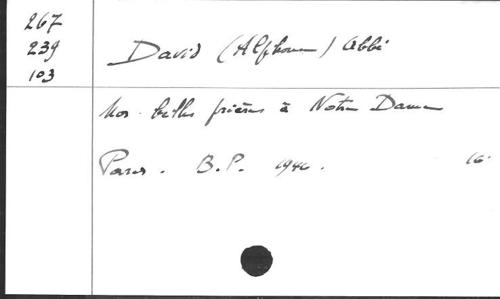 267
239
103
David (Alphonse) Abbé
Nos belles prières à Notre Dame
Paris. B.P. 1946. 16°